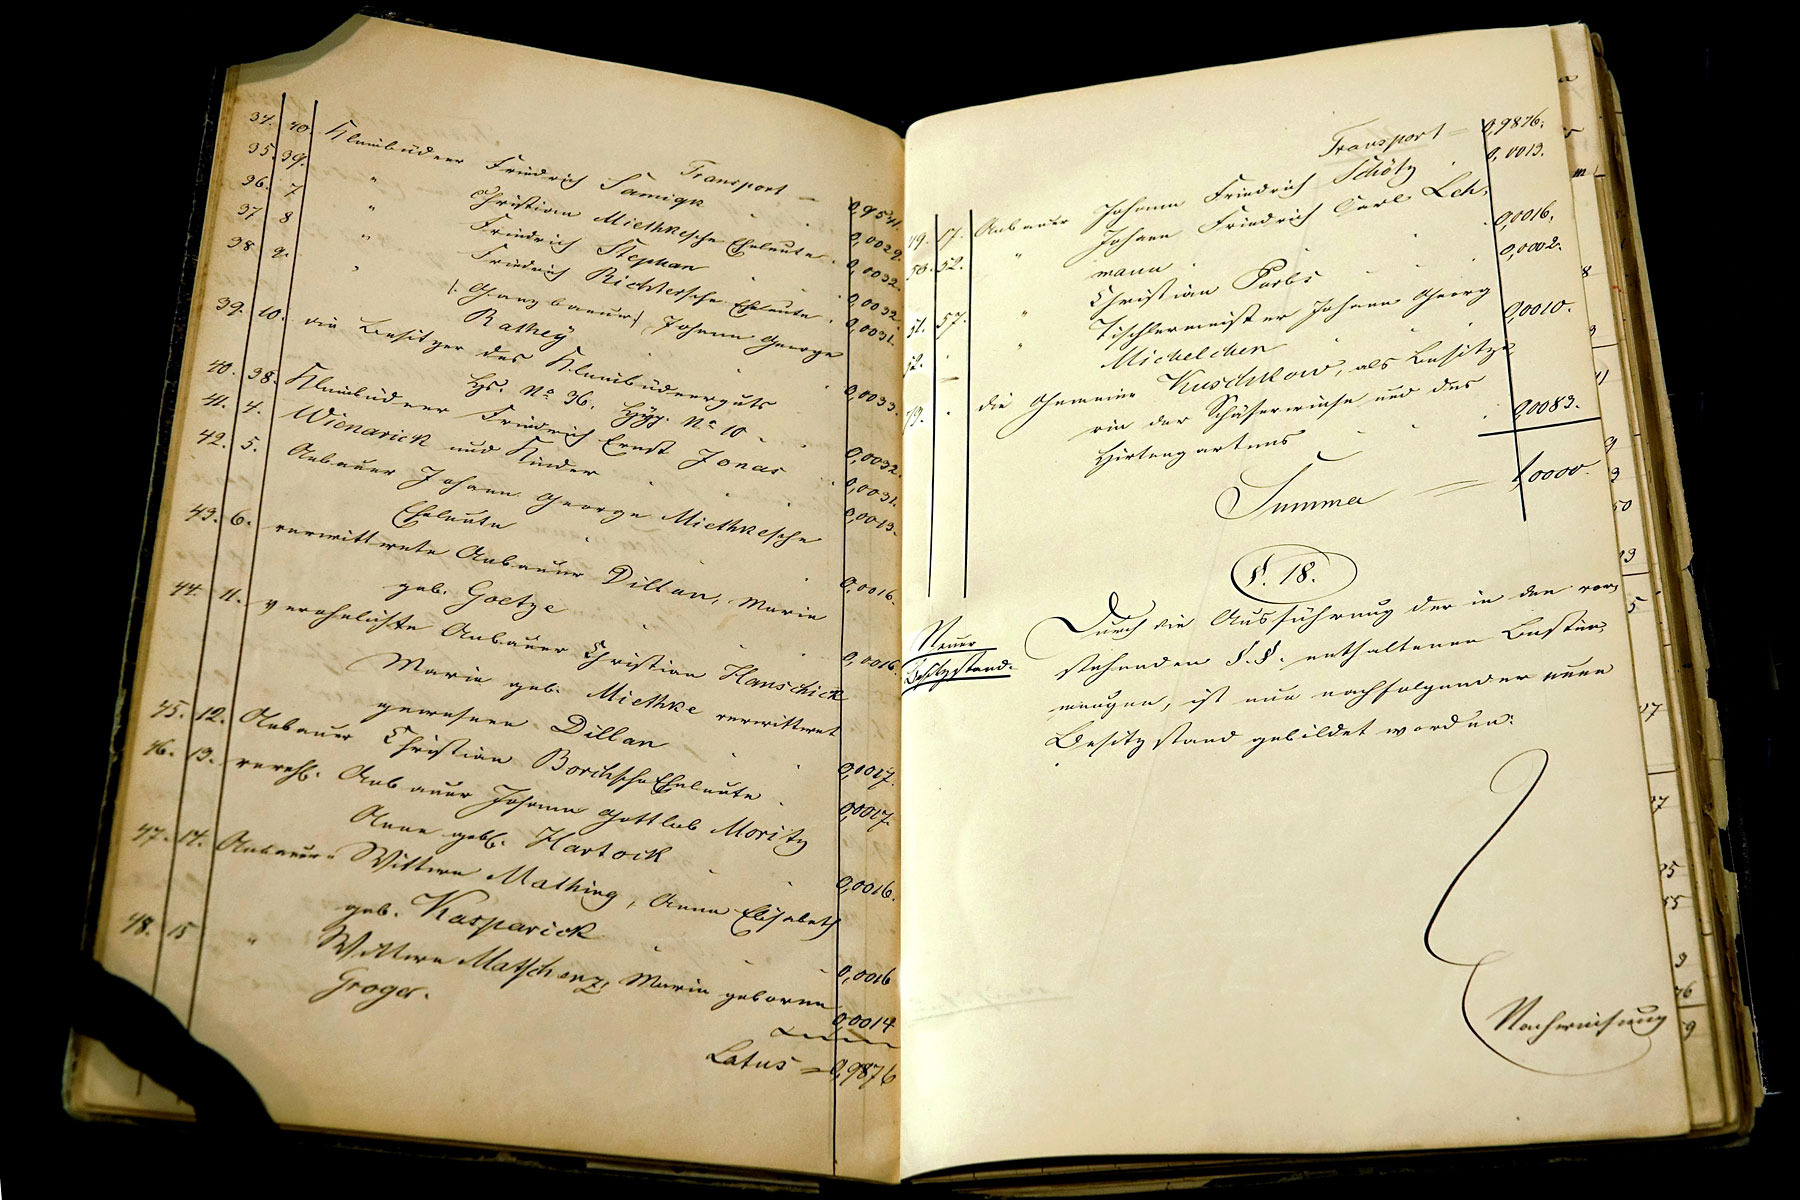 Transport = 0,9541.
34. 40. Kleinbüdner Friedrich Samigk 0,0029.
35. 39. " Christian Miethkesche Eheleute. 0,0032.
36. 7 " Friedrich Stephan 0,0032
37 8 " Friedrich Richtersche Eheleute. 0,0031.
38 9. " /. Ganzbauer / Johann George
Rathey 0,0033.
39. 10. die Besitzer des Kleinbüdnerguts
Hs. No 36. Hyp. No 10. 0,0032.
40. 38. Kleinbüdner Friedrich Ernst Jonas 0,0031.
41. 4. Wienarick und Kinder 0,0013.
42. 5. Anbauer Johann George Miethkesche
Eheleute 0,0016.
43. 6. verwittwete Anbauer Dillan, Marie
geb. Goetze 0,0016.
44. 11. verehelichte Anbauer Christian Hanschick
Marie geb. Miethke verwittwet
gewesene Dillan 0,0017.
45. 12. Anbauer Christian Borchsche Eheleute. 0,0017.
46. 13. verehl. Anbauer Johann Gottlieb Moritz
Anne gebl. Hartock 0,0016.
47. 14. Anbauer Wittwe Mathing, Anna Elisabeth
geb. Kasparick 0,0016
48. 15 " Wittwe Matschenz, Marie geborene
Groger. 0,0014
Latus = 0,9876
Transport = 0,9876.
49. 17. Anbauer Johann Friedrich Schötz 0,0013.
50. 52. " Johann Friedrich Carl Leh-
mann 0,0016.
51. 57. " Christian Parbs 0,0002.
52. — " Tischlermeister Johann Georg
Michelchen 0,0010.
die Gemeine Kuschkow, als Besitze-
rin der Schäferwiese und des
Hirtengartens 0,0083.
Summa = 1,0000.
§. 18.
Neuer
Besitzstand.
Durch die Ausführung der in den vor-
stehenden §.§. enthaltenen Bestim-
mungen, ist nun nachfolgender neue
Besitzstand gebildet worden:
Nachweisung